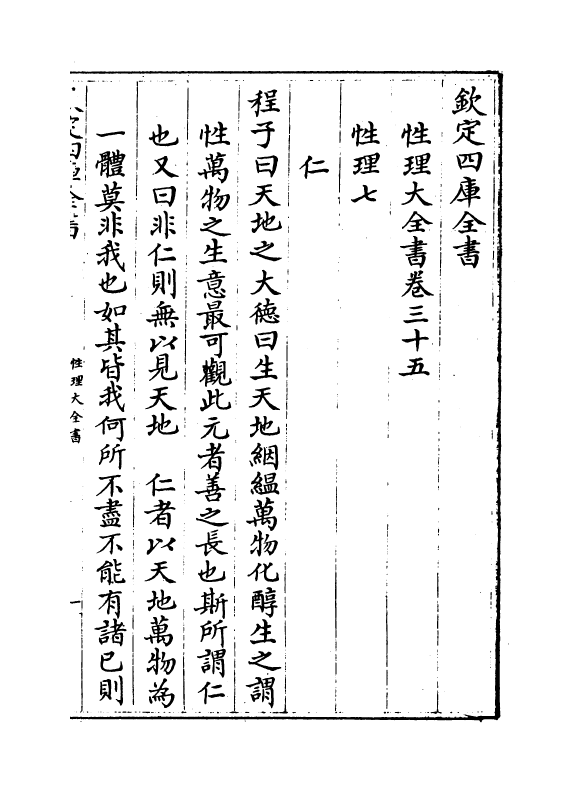 欽定四庫全書
性理大全書卷三十五
性理七
仁
程子曰天地之大德曰生天地絪縕萬物化醇生之謂
性萬物之生意最可觀此元者善之長也斯所謂仁
也又曰非仁則無以見天地　仁者以天地萬物為
一體莫非我也如其皆我何所不盡不能有諸已則
欽定四庫全書
性理大全書
一